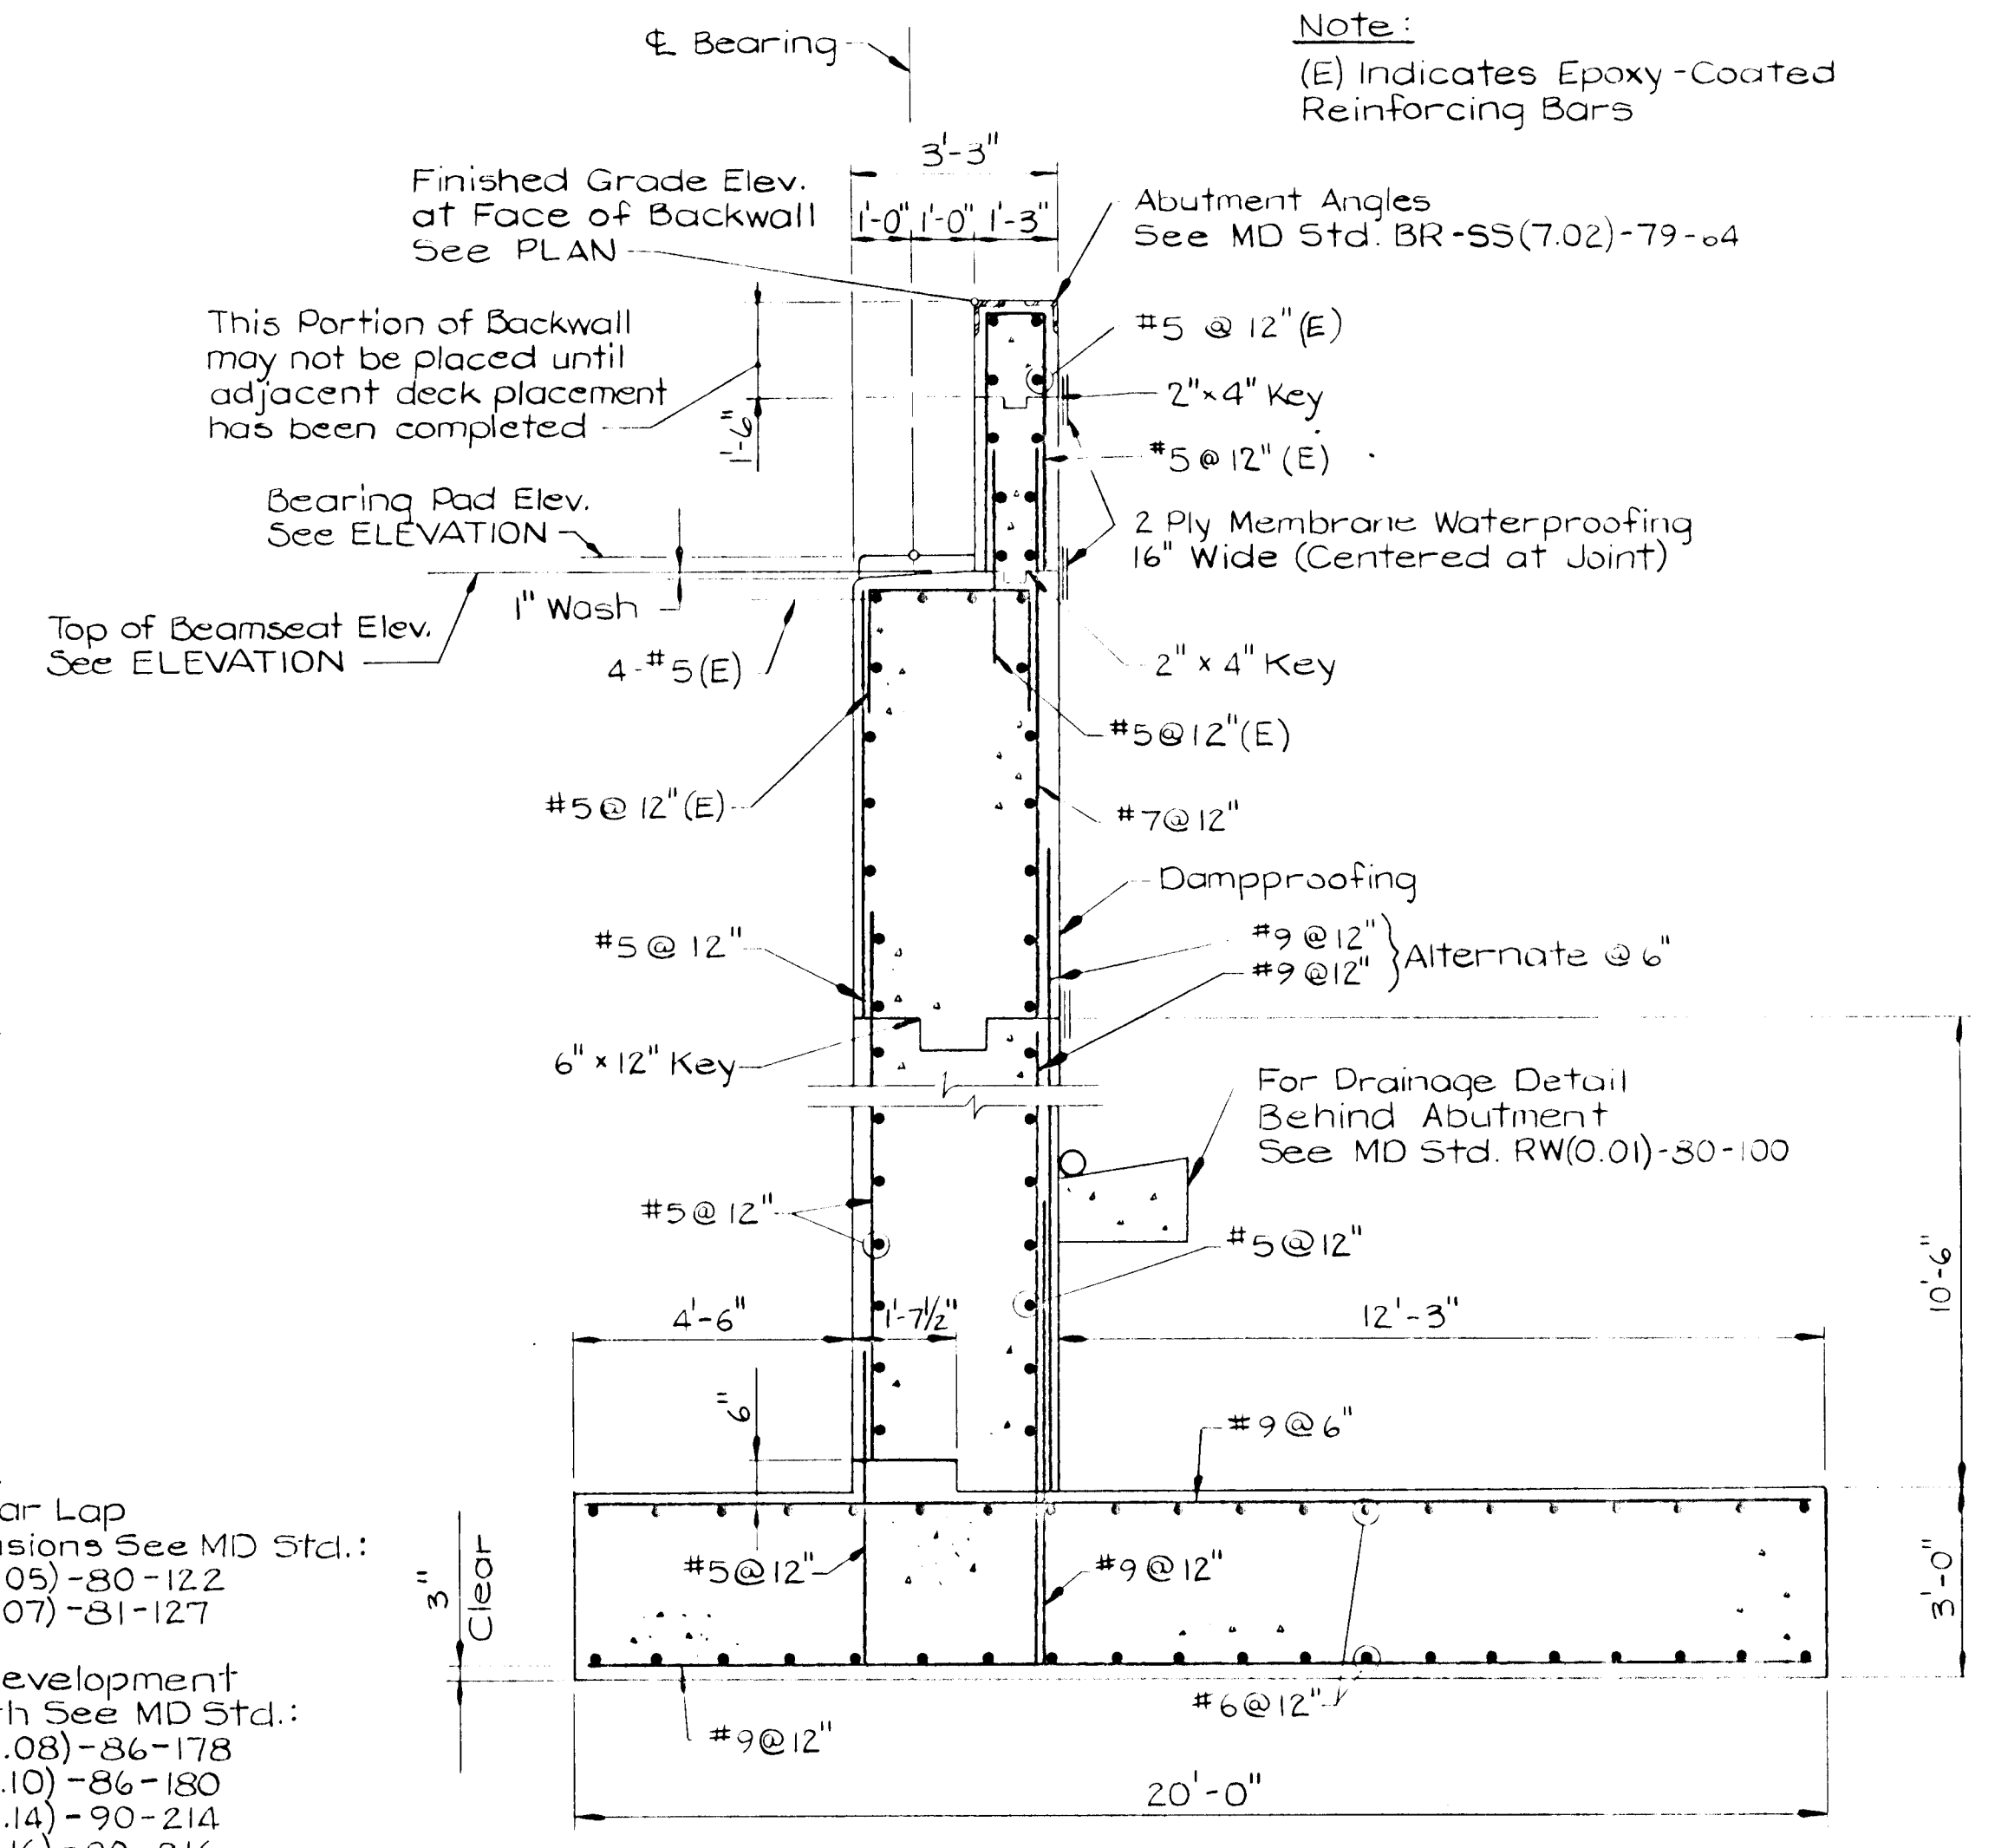 ℄ Bearing
Note:
(E) Indicates Epoxy-Coated
Reinforcing Bars
3'-3"
Finished Grade Elev.
at Face of Backwall
See PLAN
1'-0" 1'-0" 1'-3"
Abutment Angles
See MD Std. BR-SS(7.02)-79-64
This Portion of Backwall
may not be placed until
adjacent deck placement
has been completed
1'-6"
#5 @ 12"(E)
2"x4" Key
#5@12"(E)
Bearing Pad Elev.
See ELEVATION
2 Ply Membrane Waterproofing
16" Wide (Centered at Joint)
1" Wash
Top of Beamseat Elev.
See ELEVATION
4-#5(E)
2" x 4" Key
#5@12"(E)
#5@12"(E)
#7@12"
Dampproofing
#5@12"
#9@12"
#9@12"
Alternate @ 6"
6"x12" Key
For Drainage Detail
Behind Abutment
See MD Std. RW(0.01)-80-100
#5@12"
#5@12"
10'-6"
4'-6"
1'-7½"
12'-3"
6"
#9@6"
ar Lap
sions See MD Std.:
05)-80-122
07)-81-127
3"
Clear
#5@12"
#9@12"
3'-0"
evelopment
h See MD Std.:
.08)-86-178
.10)-86-180
.14)-90-214
#9@12"
#6@12"
20'-0"